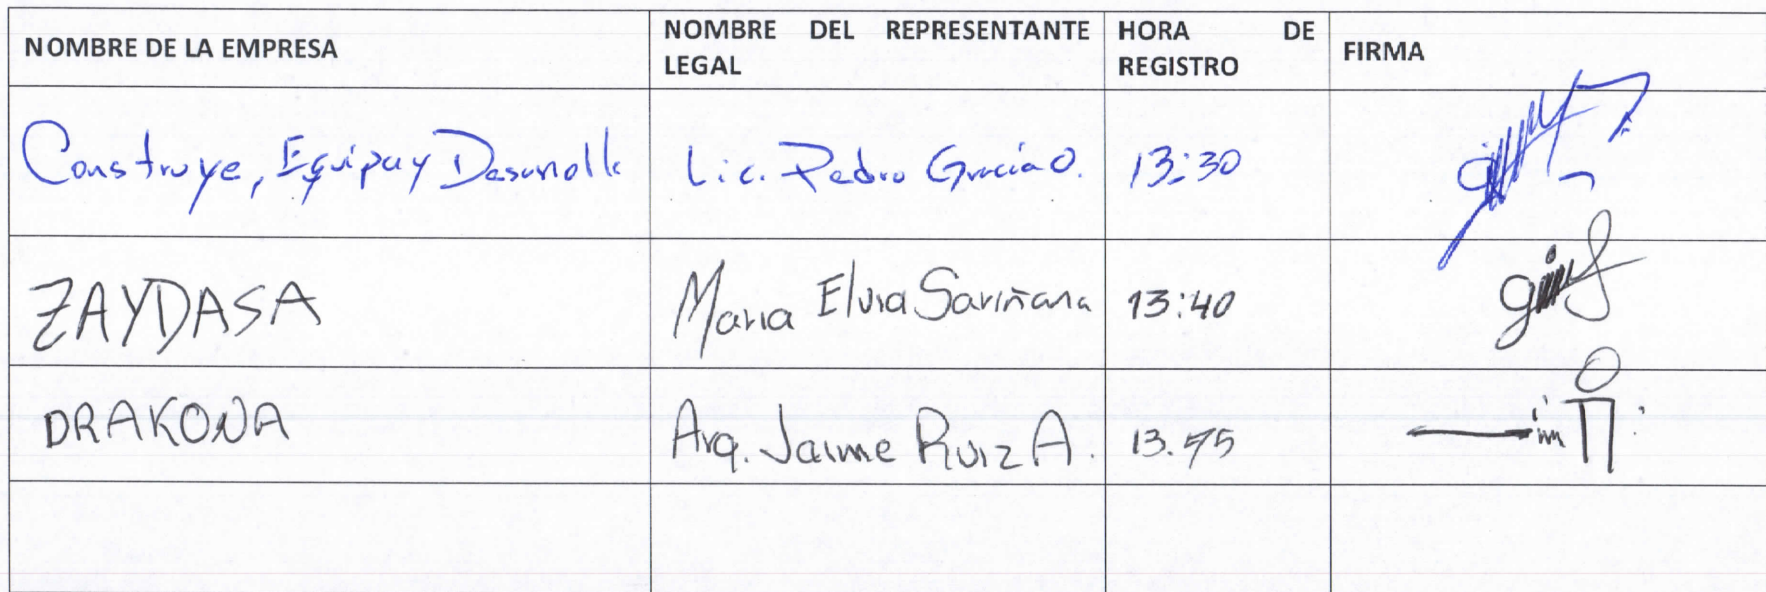 NOMBRE DE LA EMPRESA
NOMBRE DEL REPRESENTANTE LEGAL
HORA DE REGISTRO
FIRMA
Construye, Equipa y Desarrolla Lic. Pedro Gracia O. 13:30
ZAYDASA Maria Elvia Sariñana 13:40
DRAKONA Arq. Jaime Ruiz A. 13.45